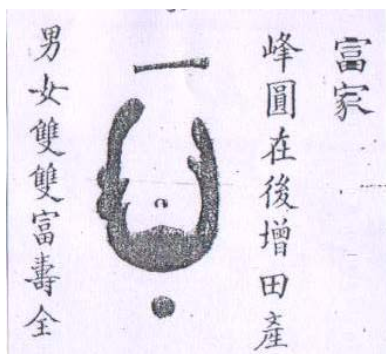 富家
峰圓在後增田產
男女雙雙富壽全